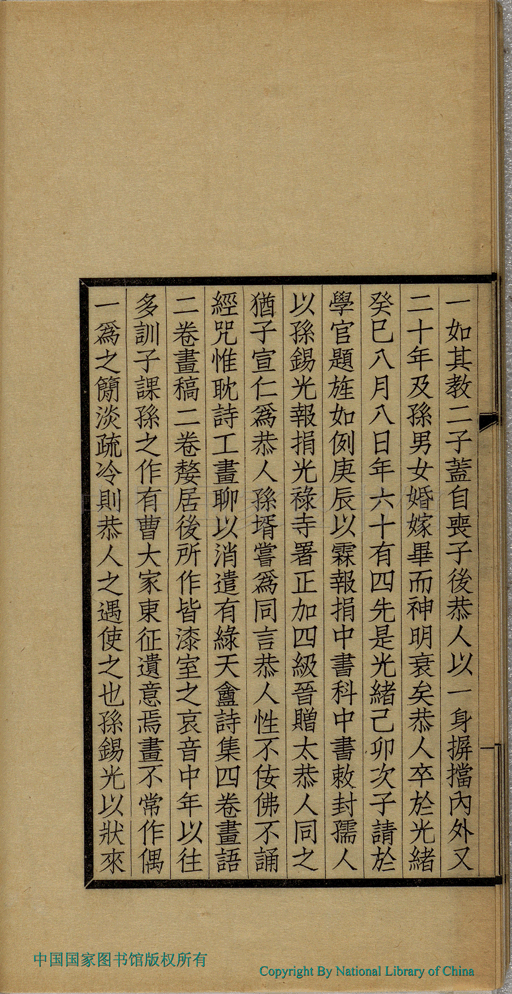 一如其教二子蓋自喪子後恭人以一身摒擋內外又
二十年及孫男女婚嫁畢而神明衰矣恭人卒於光緒
癸巳八月八日年六十有四先是光緒己卯次子請於
學官題旌如例庚辰以霖報捐中書科中書敕封孺人
以孫錫光報捐光祿寺署正加四級晉贈太恭人同之
猶子宣仁為恭人孫壻嘗為同言恭人性不佞佛不誦
經咒惟耽詩工畫聊以消遣有綠天盦詩集四卷畫語
二卷畫稿二卷嫠居後所作皆漆室之哀音中年以往
多訓子課孫之作有曹大家東征遺意焉畫不常作偶
一爲之簡淡疏冷則恭人之遇使之也孫錫光以狀來
中国国家图书馆版权所有
Copyright By National Library of China